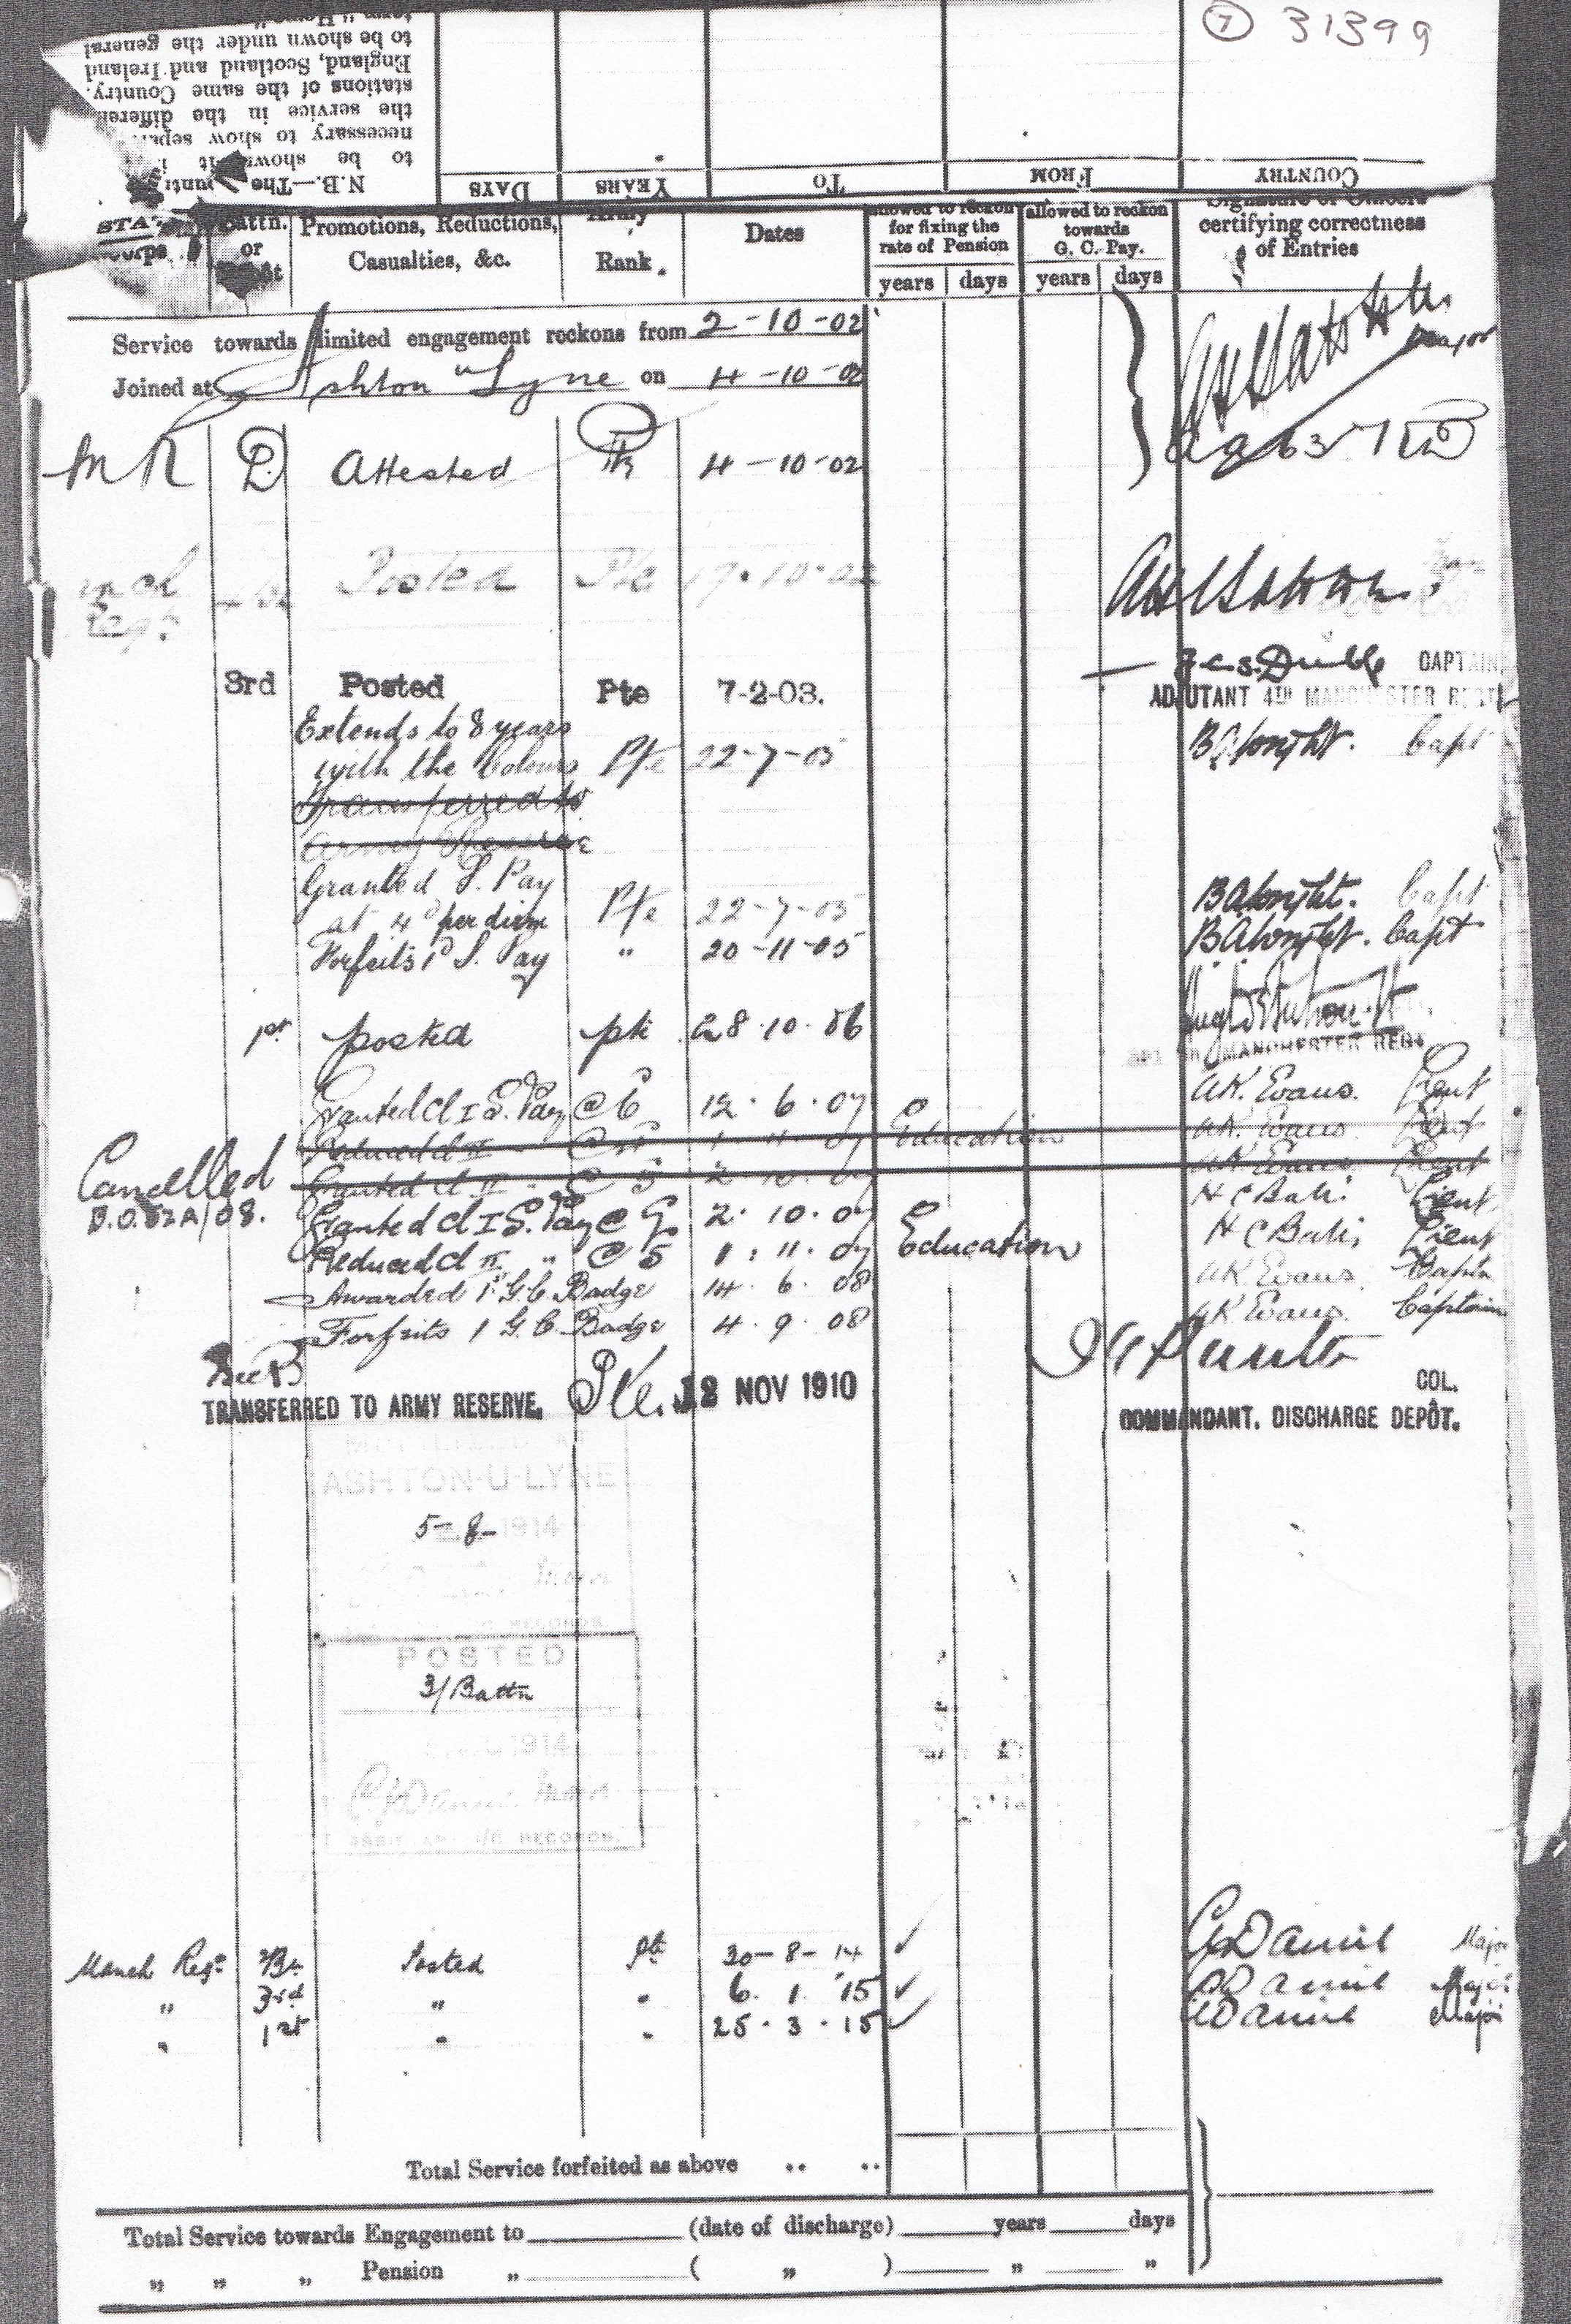 7 31399
N.B.—The
to be shown
necessary to show
the service in the
stations of the same Country.
England, Scotland and Ireland
to be shown under the general
DAYS YEARS To FROM COUNTRY
Battn. or
Promotions, Reductions, Casualties, &c.
Army Rank.
Dates
allowed to reckon for fixing the rate of Pension
years days
allowed to reckon towards G. C. Pay.
years days
Signature of Officers certifying correctness of Entries
Service towards limited engagement reckons from 2-10-02
Joined at Ashton "Lyne on 4-10-02
Major
M R D. Attested Pte 4-10-02
Posted Pte 19.10.02
3rd Posted Pte 7-2-03.
CAPTAIN
ADJUTANT 4TH MANCHESTER REGT
Extends to 8 years
with the Colours Pte 22-7-05 Capt
Transferred to
Army Reserve
Granted S. Pay
at 4d per diem Pte 22-7-05 Capt
Forfeits 1d S. Pay " 20-11-05 Capt
1st posted pte 28.10.06
MANCHESTER REGT
Granted Cl I S. Pay @ 6 12.6.07 A.K. Evans. Lieut
Reduced Cl II 1.11.07 Education A.K. Evans Lieut
Cancelled Granted Cl II @ 5 2.10.07 A.K. Evans Lieut
Granted Cl I S. Pay @ 6 2.10.07 Lieut
Reduced Cl II " @ 5 1.11.07 Education Lieut
Awarded 1 G.C. Badge 14.6.08 A.K. Evans Captn
Forfeits 1 G.C. Badge 4.9.08 A.K. Evans. Captain
TRANSFERRED TO ARMY RESERVE. Pte. 12 NOV 1910
COL.
COMMANDANT. DISCHARGE DEPÔT.
ASHTON-U-LYNE
5-8-1914
RECORDS
POSTED
3/Battn
1914
RECORDS.
Manch Regt Posted Pte 30-8-14 Major
" 3rd " " 6.1.15 Major
" 1st " " 25.3.15 Major
Total Service forfeited as above .. ..
Total Service towards Engagement to (date of discharge) years days
" " " Pension " ( " ) " "